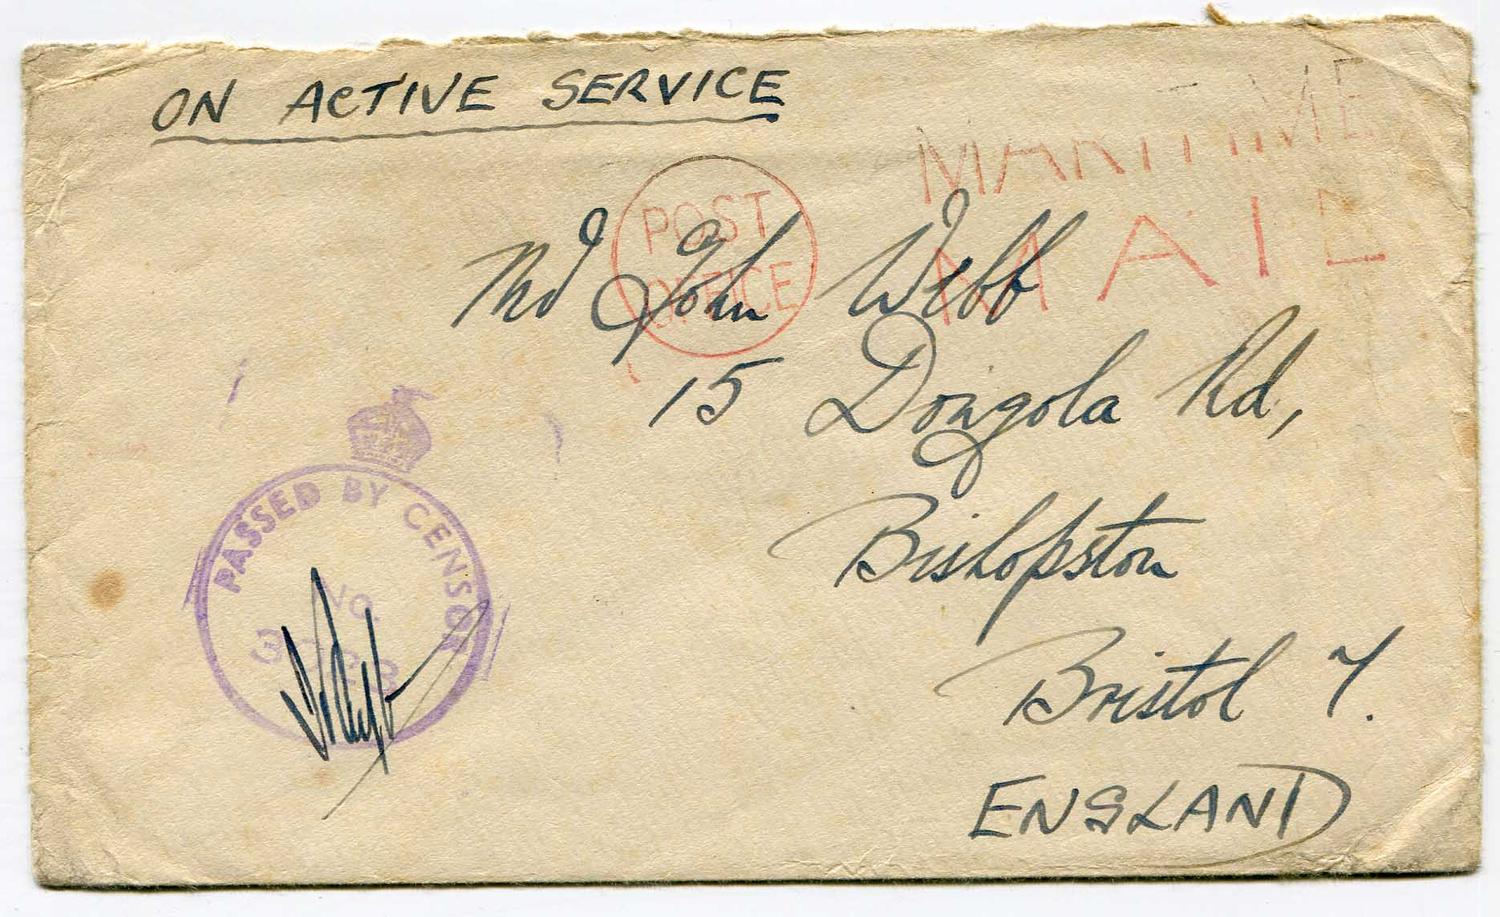 ON ACTIVE SERVICE
MARITIME
MAIL
POST
OFFICE
Mr John Webb
15 Dongola Rd,
Bishopston
Bristol 7.
ENGLAND
PASSED BY CENSOR
NO.